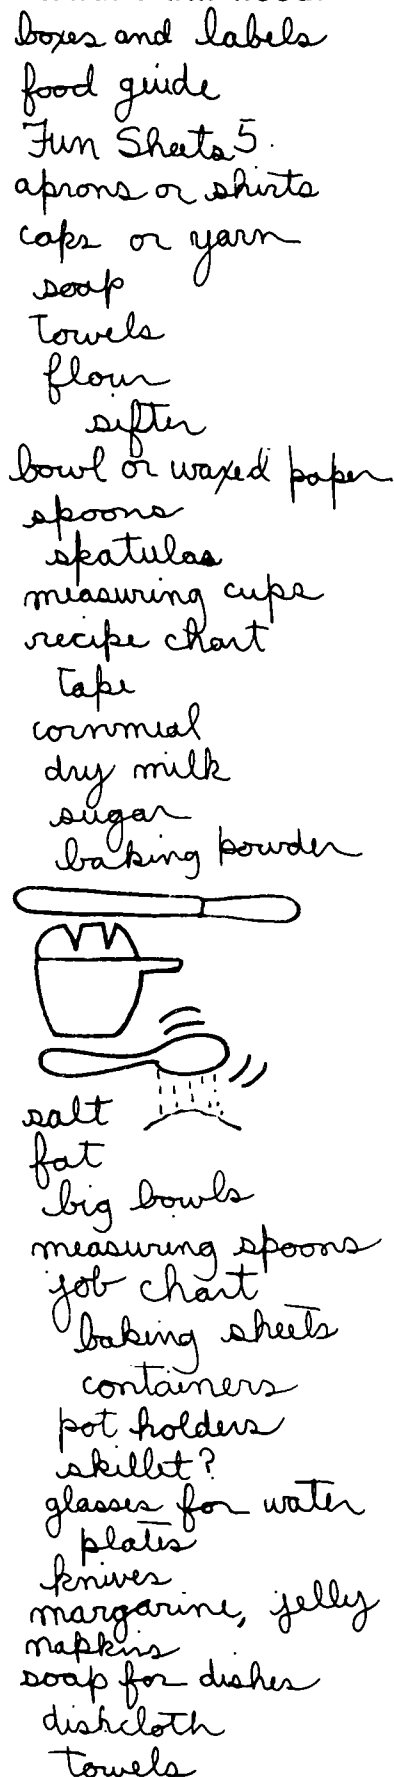 boxes and labels
food guide
Fun Sheets 5.
aprons or shirts
caps or yarn
soap
towels
flour
sifter
bowl or waxed paper
spoons
spatulas
measuring cups
recipe chart
tape
cornmeal
dry milk
sugar
baking powder
salt
fat
big bowls
measuring spoons
job chart
baking sheets
containers
pot holders
skillet?
glasses for water
plates
knives
margarine, jelly
napkins
soap for dishes
dishcloth
towels